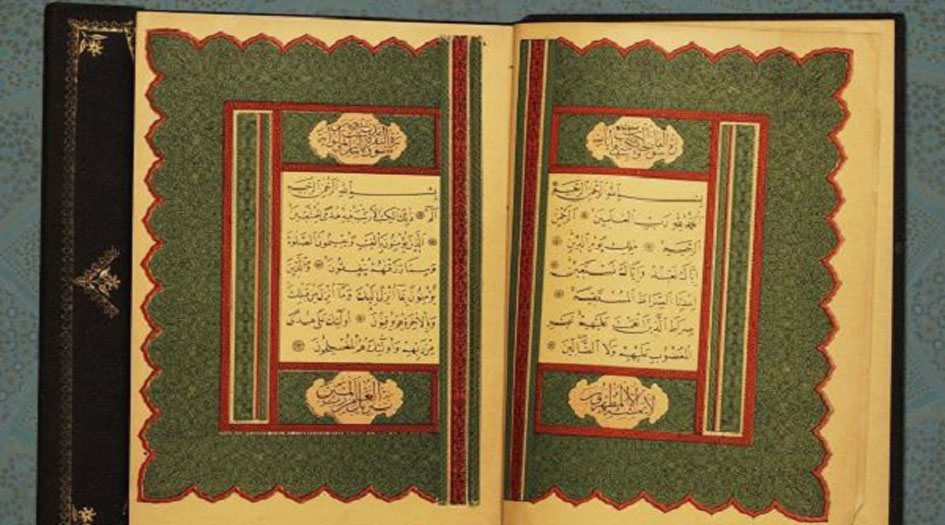 بِسْمِ اللهِ الرَّحْمٰنِ الرَّحِيمِ
اَلْحَمْدُ لِلّٰهِ رَبِّ الْعَالَمِينَ الرَّحْمٰنِ
الرَّحِيمِ مَالِكِ يَوْمِ الدِّينِ
اِيَّاكَ نَعْبُدُ وَاِيَّاكَ نَسْتَعِينُ
اِهْدِنَا الصِّرَاطَ الْمُسْتَقِيمَ
صِرَاطَ الَّذِينَ اَنْعَمْتَ عَلَيْهِمْ غَيْرِ
الْمَغْضُوبِ عَلَيْهِمْ وَلَا الضَّالِّينَ
لا يمسه الا المطهرون
بِسْمِ اللهِ الرَّحْمٰنِ الرَّحِيمِ
الٓمٓ ذٰلِكَ الْكِتَابُ لَا رَيْبَ فِيهِ هُدًى لِلْمُتَّقِينَ
اَلَّذِينَ يُؤْمِنُونَ بِالْغَيْبِ وَيُقِيمُونَ الصَّلٰوةَ
وَمِمَّا رَزَقْنَاهُمْ يُنْفِقُونَ وَالَّذِينَ
يُؤْمِنُونَ بِمَا اُنْزِلَ اِلَيْكَ وَمَا اُنْزِلَ مِنْ قَبْلِكَ
وَبِالْاٰخِرَةِ هُمْ يُوقِنُونَ اُولٰئِكَ عَلٰى هُدًى
مِنْ رَبِّهِمْ وَاُولٰئِكَ هُمُ الْمُفْلِحُونَ
تنزيل من رب العالمين